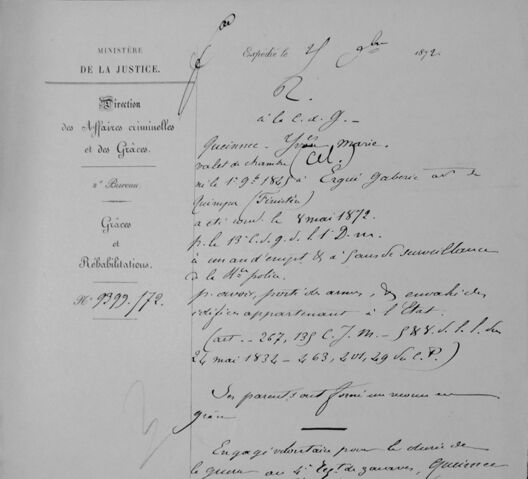 MINISTÈRE
DE LA JUSTICE.
Direction
des Affaires criminelles
et des Grâces.
2e Bureau.
Grâces
et
Réhabilitations.
No 9399./72.
Expédié le 25 9bre 1872.
R.
à la C. d. G.
Queinnec Yves Marie.
valet de chambre (Cél.)
né le 1er 9bre 1845 à Ergué Gaberic arrt de
Quimper (Finistère)
a été cond. le 8 mai 1872.
p. le 13e C. d. g. d. l. 1e D. m.
à un an d'empt & à 5 ans de surveillance
de la Hte police
p. avoir, porté des armes, & envahi des
édifices appartenant à l'État.
(art. 267, 135 C. J. M. - 5 & 8 d. l. l. du
24 mai 1834 - 463, 401, 49 du C. P.)
Ses parents ont formé un recours en
grâce
Engagé volontaire pour la durée de
la guerre au 4e Régt de zouaves, Queinnec